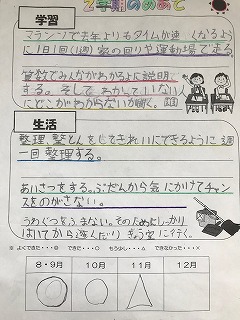 2学期のめあて
学習
マラソンで去年よりもタイムが速くなるよう
に1日1回(1週)家の回りや運動場で走る
算数でみんながわかるように説明
する。そして、わかっていない人
にどこがわからないか聞く。
生活
整理整とんをしてきれいにできるように週
一回整理する。
あいさつをする。ふだんから気にかけてチャン
スをのがさない。
うわぐつをふまない。そのためにしっかり
はいてから遊んだりきょう室に行く。
※よくできた・・・◎ できた・・・○ もう少し・・・△ できなかった・・・×
8・9月 10月 11月 12月